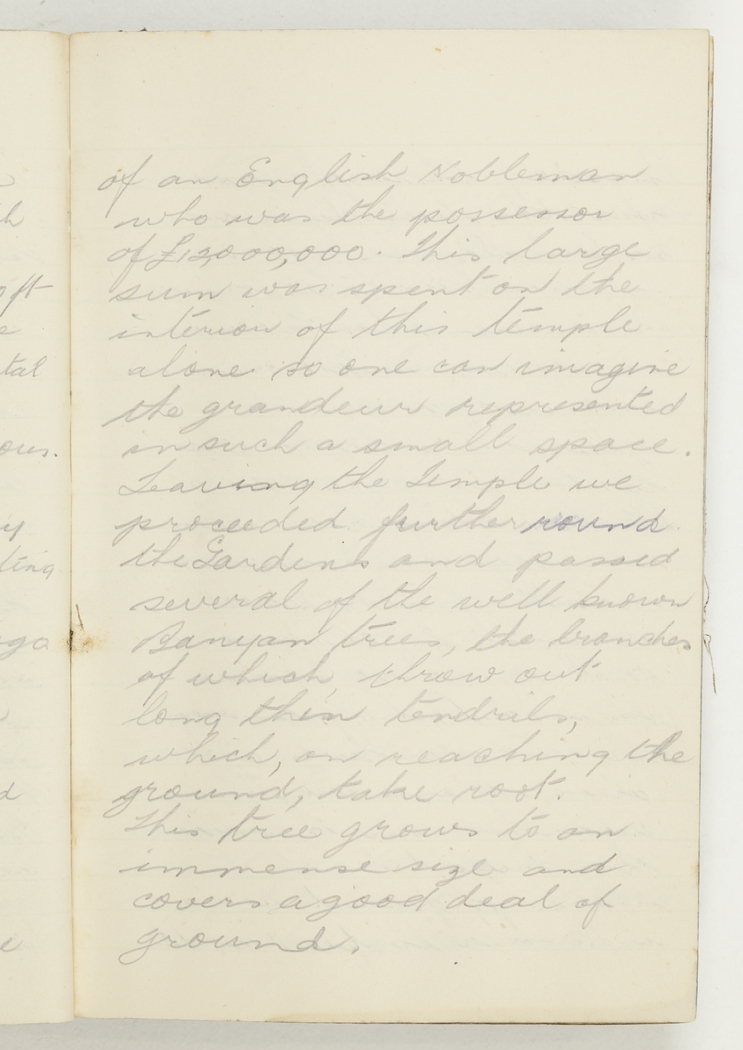 of an English Nobleman
who was the possessor
of £12,000,000. This large
sum was spent on the
interior of this temple
alone so one can imagine
the grandeur represented
in such a small space.
Leaving the Temple we
proceeded further round
the Gardens and passed
several of the well known
Banyan trees, the branches
of which, throw out
long thin tendrils,
which, on reaching the
ground, take root.
This tree grows to an
immense size and
covers a good deal of
ground.